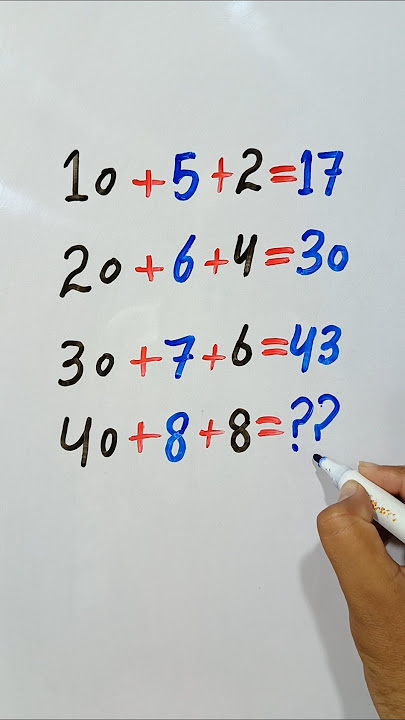 10+5+2=17
20+6+4=30
30+7+6=43
40+8+8=??